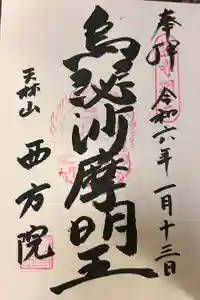 奉拝 令和六年 一月十三日
烏瑟沙摩明王
天林山
西方院